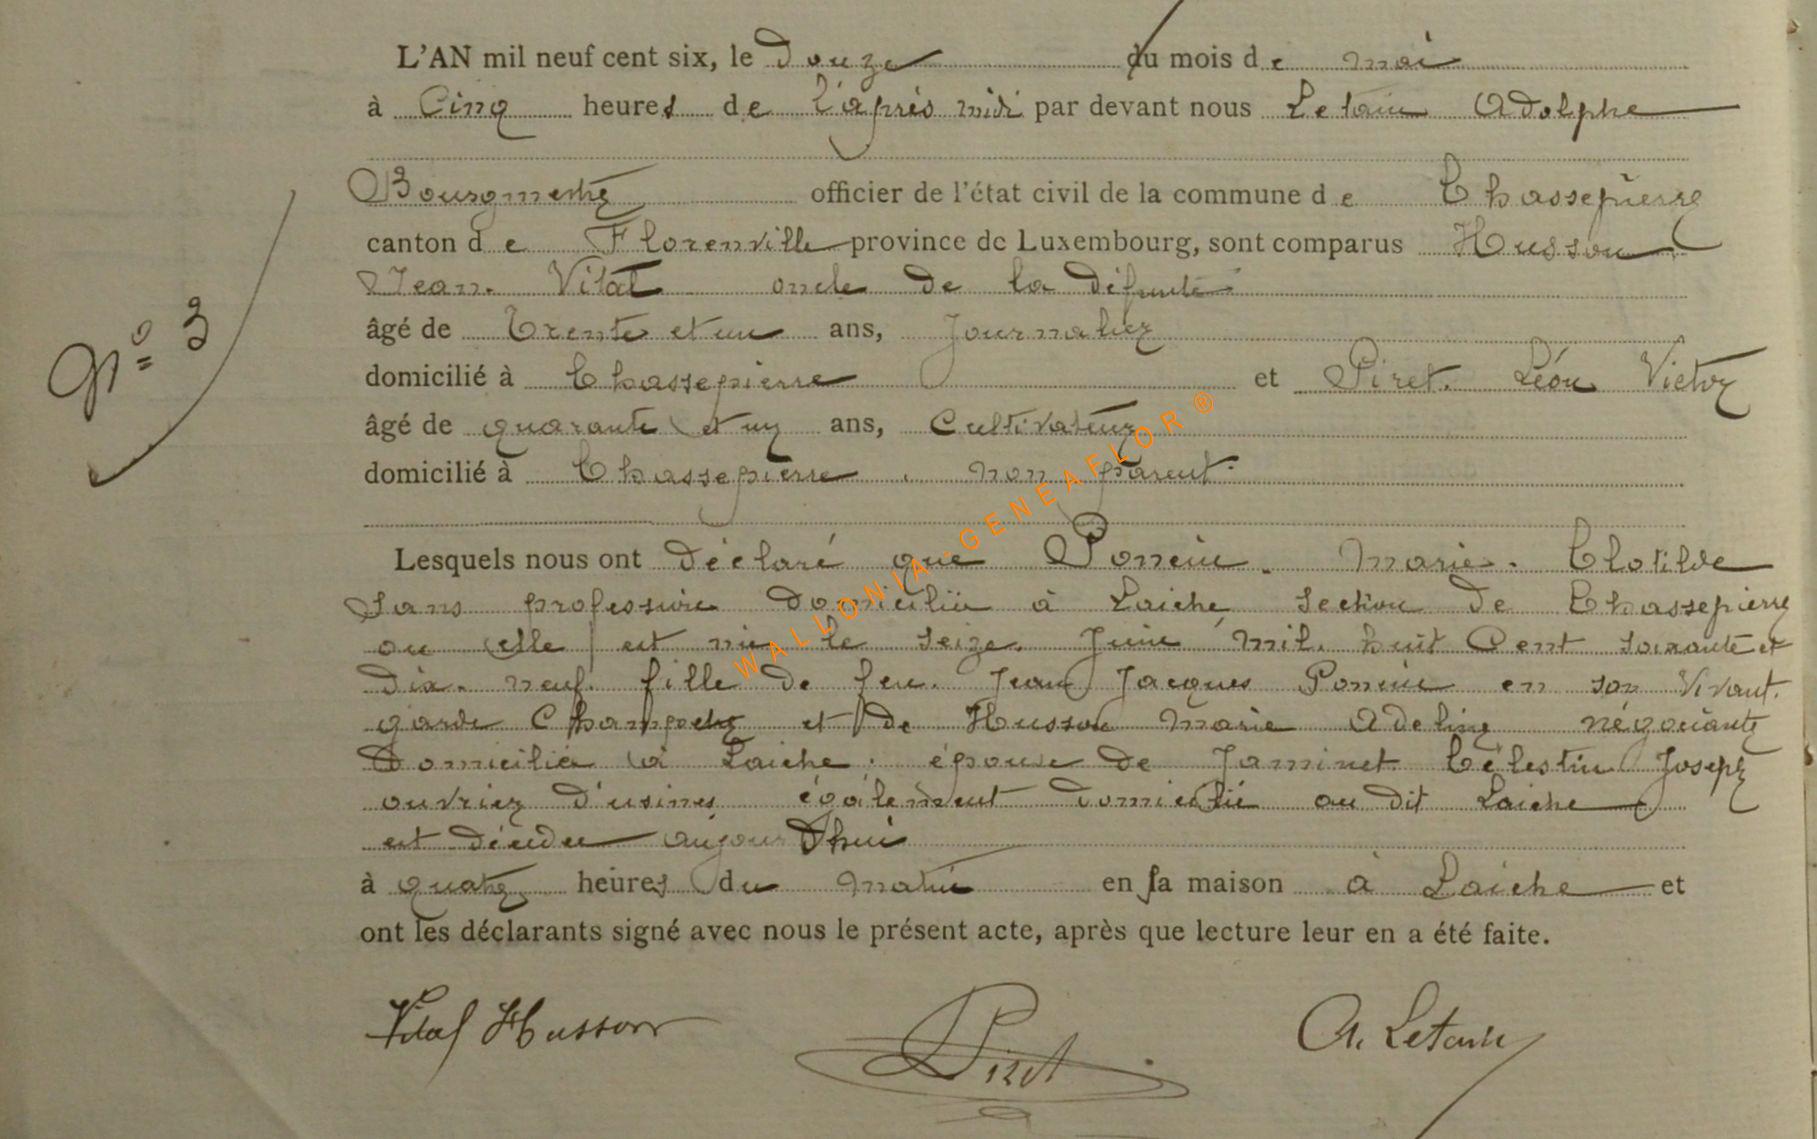 L'AN mil neuf cent six, le douze du mois de mai
à Cinq heures de l'après midi par devant nous Letain Adolphe
Bourgmestre officier de l'état civil de la commune de Chassepierre
canton de Florenville province de Luxembourg, sont comparus Husson
Jean. Vital oncle de la défunte
âgé de Trente et un ans, Journalier
N° 3
domicilié à Chassepierre et Piret. Léon Victor
âgé de quarante et un ans, Cultivateur
domicilié à Chassepierre. non parent.
Lesquels nous ont déclaré que Poncin. Marie. Clotilde
sans profession domiciliée à Laiche section de Chassepierre
ou elle est née le seize. Juin mil. huit Cent soixante et
dix. neuf. fille de feu. Jean Jacques Poncin en son vivant.
garde Champetre et de Husson Marie Adeline négociante
domiciliée à Laiche. épouse de Jaminet Célestin Joseph
ouvrier d'usines également domicilié au dit Laiche
est décédée aujourd'hui
à quatre heures du matin en sa maison à Laiche et
ont les déclarants signé avec nous le présent acte, après que lecture leur en a été faite.
Vital Husson Piret A. Letain
WALLONIA-GENEAFLOR ®